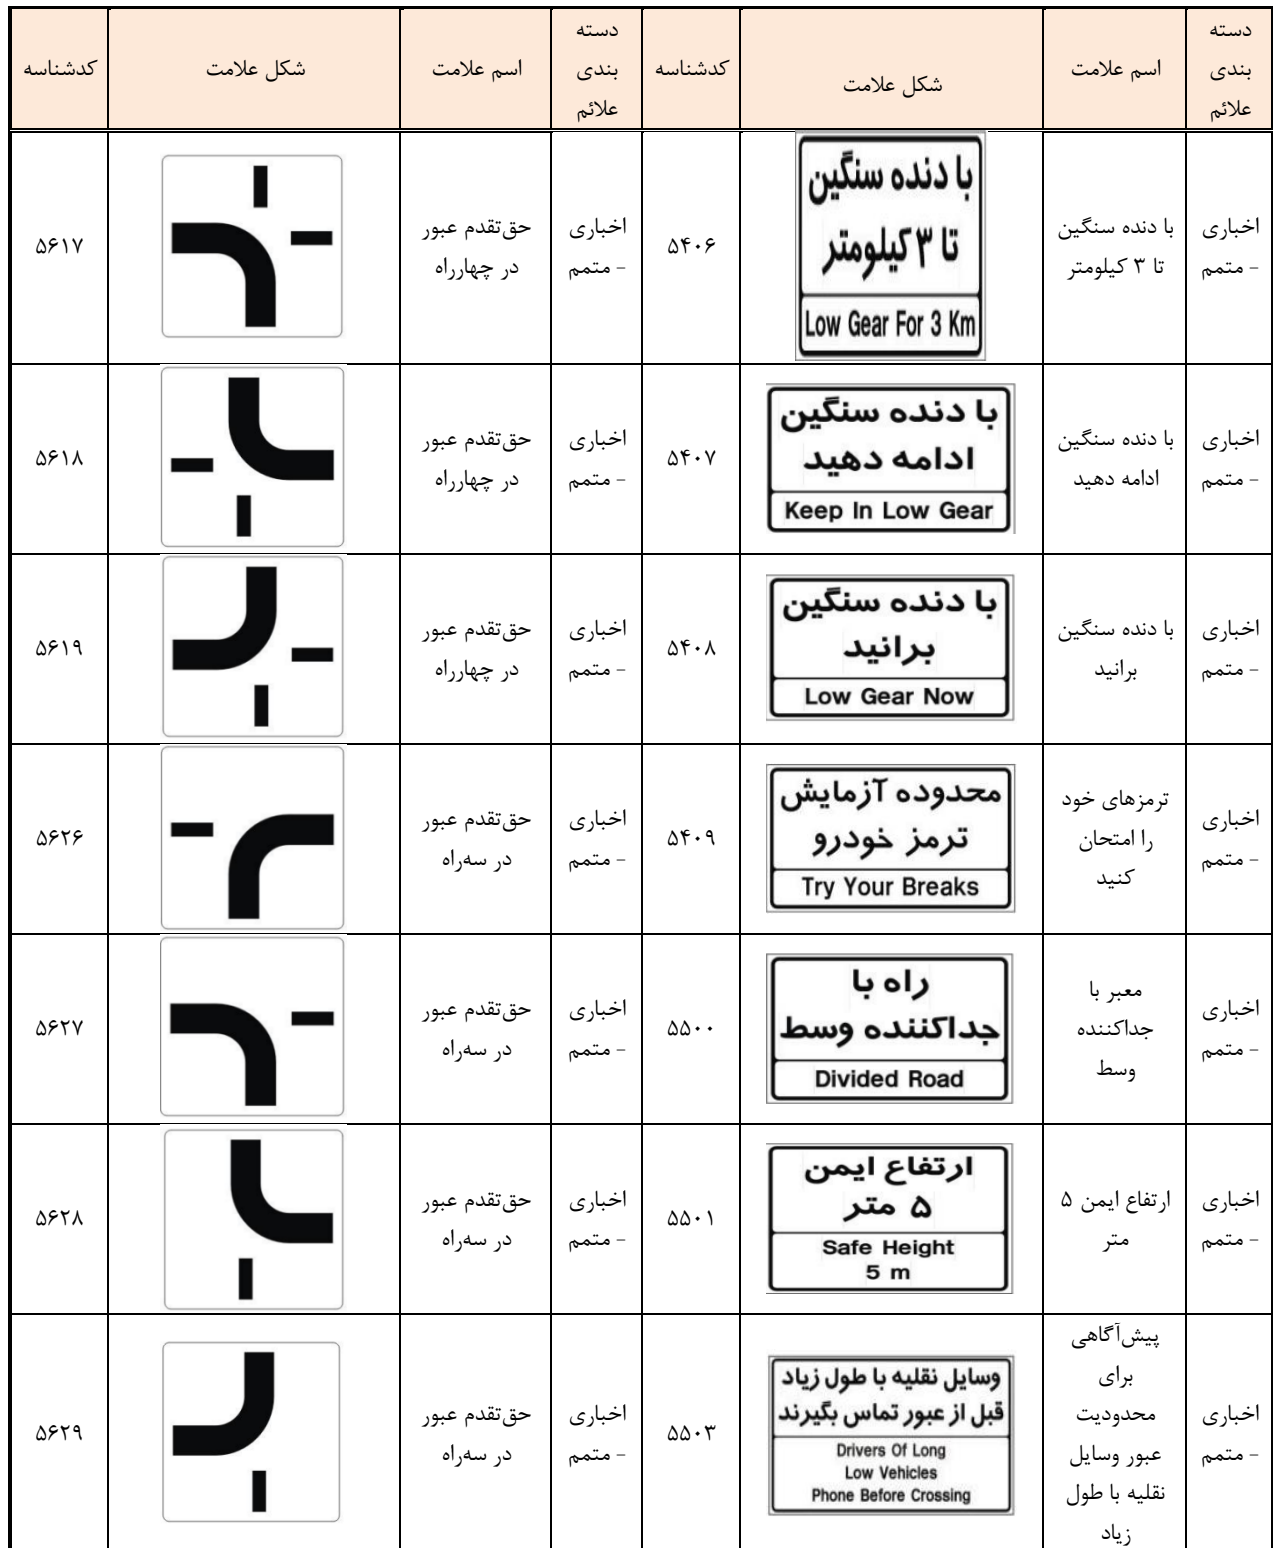 دسته بندی علائم
اسم علامت
شکل علامت
کدشناسه
دسته بندی علائم
اسم علامت
شکل علامت
کدشناسه
اخباری - متمم
با دنده سنگین تا ۳ کیلومتر
با دنده سنگین
تا ۳ کیلومتر
Low Gear For 3 Km
۵۴۰۶
اخباری - متمم
حق‌تقدم عبور در چهارراه
۵۶۱۷
اخباری - متمم
با دنده سنگین ادامه دهید
با دنده سنگین
ادامه دهید
Keep In Low Gear
۵۴۰۷
اخباری - متمم
حق‌تقدم عبور در چهارراه
۵۶۱۸
اخباری - متمم
با دنده سنگین برانید
با دنده سنگین
برانید
Low Gear Now
۵۴۰۸
اخباری - متمم
حق‌تقدم عبور در چهارراه
۵۶۱۹
اخباری - متمم
ترمزهای خود را امتحان کنید
محدوده آزمایش
ترمز خودرو
Try Your Breaks
۵۴۰۹
اخباری - متمم
حق‌تقدم عبور در سه‌راه
۵۶۲۶
اخباری - متمم
معبر با جداکننده وسط
راه با
جداکننده وسط
Divided Road
۵۵۰۰
اخباری - متمم
حق‌تقدم عبور در سه‌راه
۵۶۲۷
اخباری - متمم
ارتفاع ایمن ۵ متر
ارتفاع ایمن
۵ متر
Safe Height
5 m
۵۵۰۱
اخباری - متمم
حق‌تقدم عبور در سه‌راه
۵۶۲۸
اخباری - متمم
پیش‌آگاهی برای محدودیت عبور وسایل نقلیه با طول زیاد
وسایل نقلیه با طول زیاد
قبل از عبور تماس بگیرند
Drivers Of Long
Low Vehicles
Phone Before Crossing
۵۵۰۳
اخباری - متمم
حق‌تقدم عبور در سه‌راه
۵۶۲۹